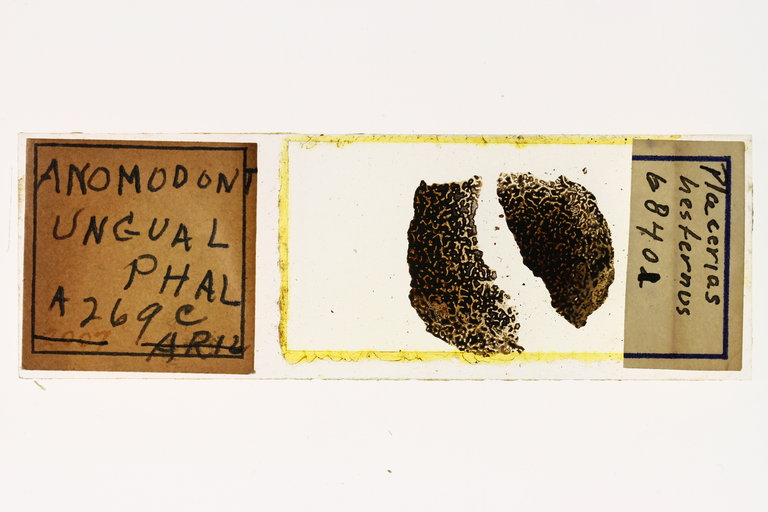 ANOMODONT
UNGUAL
PHAL
A 269C
ARIZ
Placerias
hesternus
68402